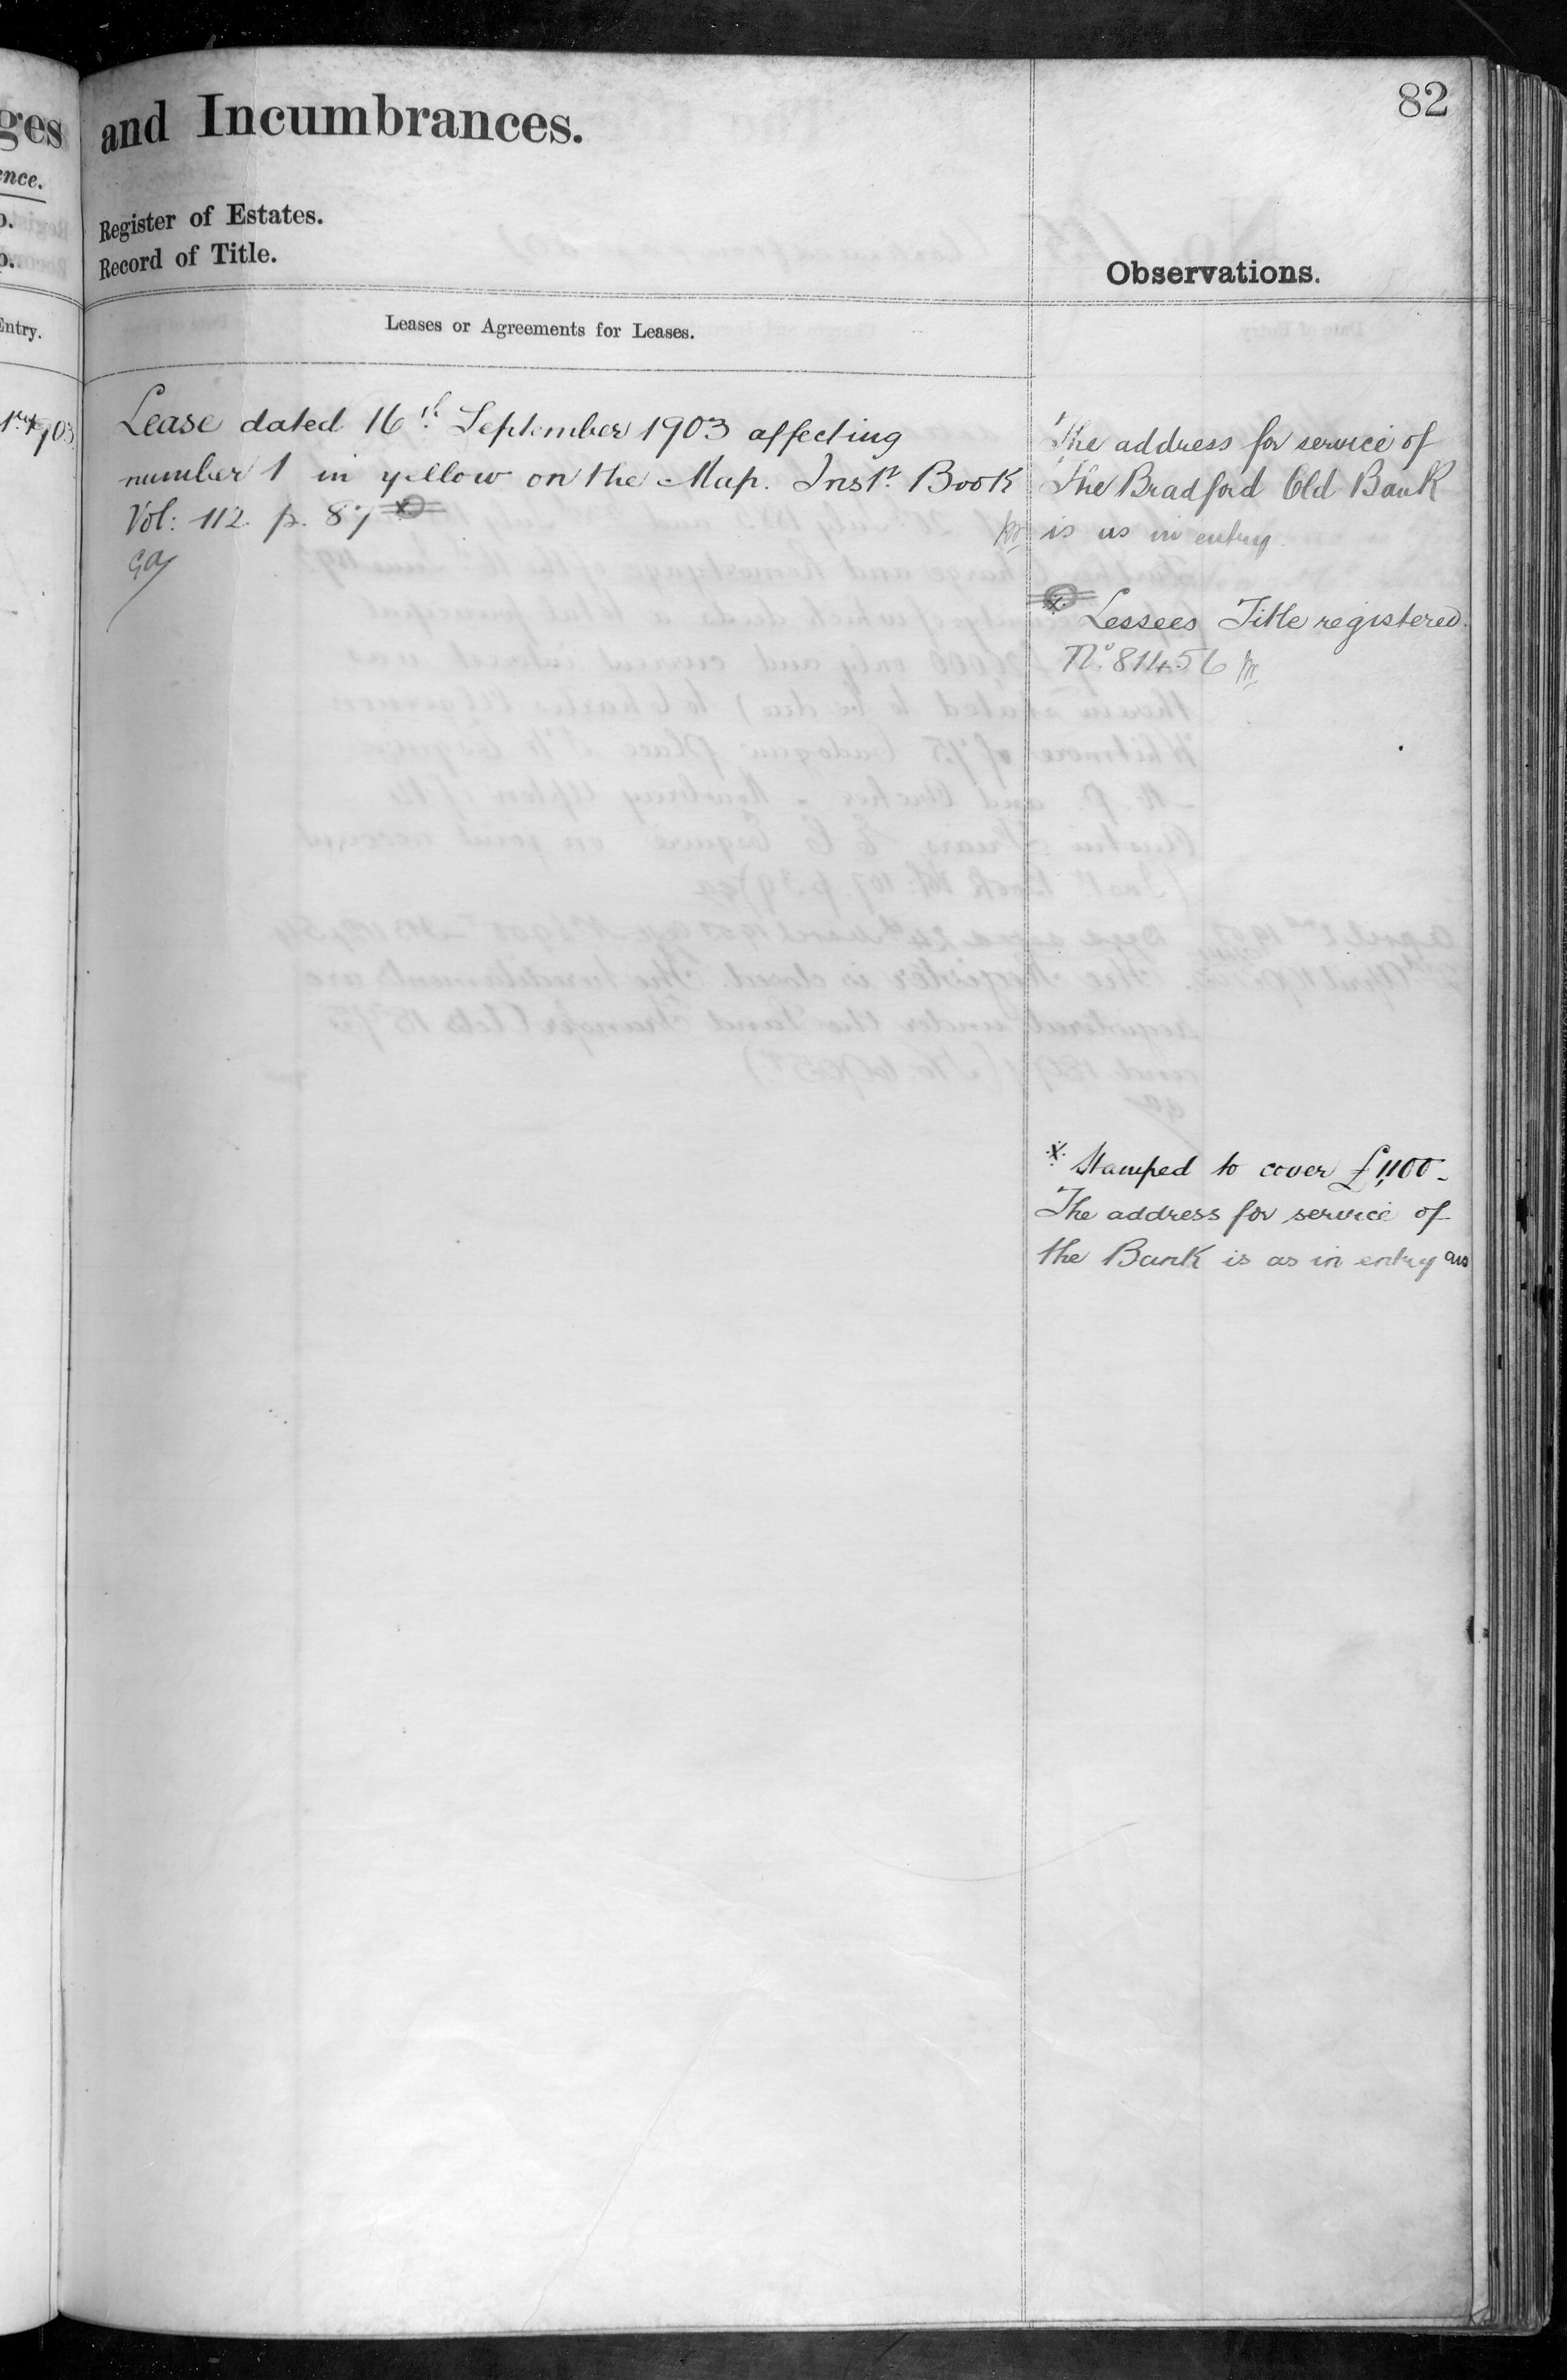 ges
ence.
o.
o.
Entry.
1903
and Incumbrances.
82
Register of Estates.
Record of Title.
Observations.
Leases or Agreements for Leases.
Lease dated 16th September 1903 affecting
number 1 in yellow on the Map. Instt. Book
Vol: 112 p. 87 x
The address for service of
The Bradford Old Bank
is as in entry
x Lessees Title registered.
No. 81456
x Stamped to cover £1,100 -
The address for service of
the Bank is as in entry